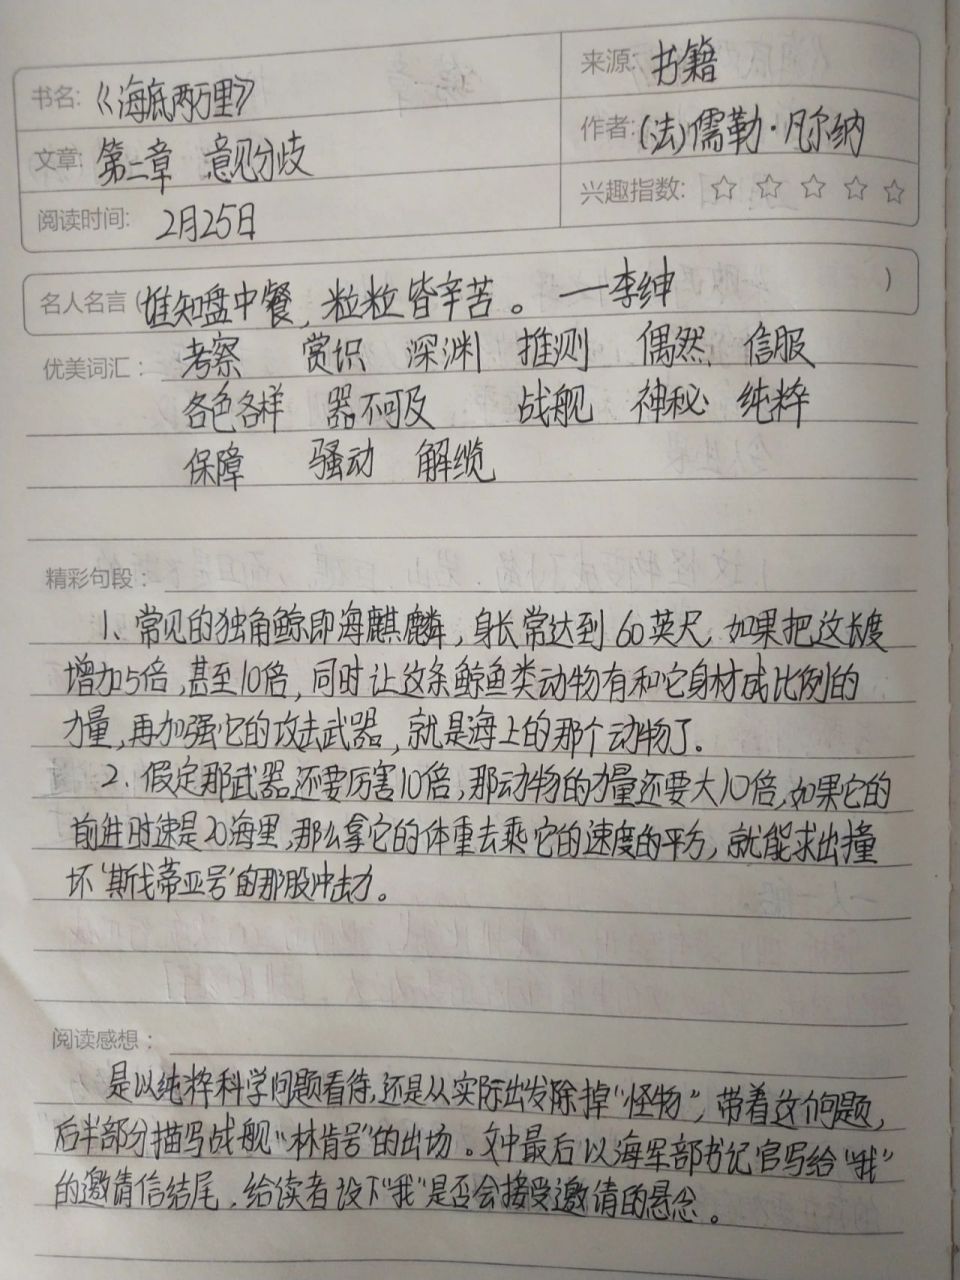 书名: 《海底两万里》
来源: 书籍
文章: 第二章 意见分歧
作者: (法)儒勒·凡尔纳
阅读时间: 2月25日
兴趣指数: ☆ ☆ ☆ ☆ ☆
名人名言 (谁知盘中餐,粒粒皆辛苦。 —李绅 )
优美词汇: 考察 赏识 深渊 推测 偶然 信服
各色各样 器不可及 战舰 神秘 纯粹
保障 骚动 解缆
精彩句段:
1、常见的独角鲸即海麒麟,身长常达到60英尺,如果把这长度
增加5倍,甚至10倍,同时让这条鲸鱼类动物有和它身材成比例的
力量,再加强它的攻击武器,就是海上的那个动物了.
2.假定那武器还要厉害10倍,那动物的力量还要大10倍,如果它的
前进时速是20海里,那么拿它的体重去乘它的速度的平方,就能求出撞
坏'斯戈蒂亚号'的那股冲击力。
阅读感想:
是以纯粹科学问题看待,还是从实际出发除掉“怪物”,带着这个问题,
后半部分描写战舰“林肯号”的出场。文中最后以海军部书记官写给“我”
的邀请信结尾,给读者设下“我”是否会接受邀请的悬念。